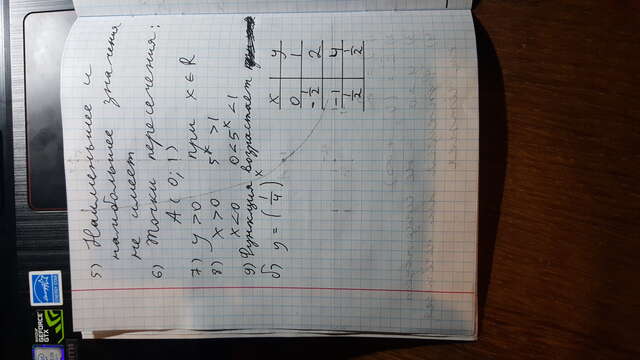 NVIDIA
GEFORCE
GTX
ENERGY STAR
5) Наименьшее и
наибольшее значения
не имеет
6) Точки пересечения:
A (0; 1)
7) y > 0 при x ∈ R
8) x > 0 5^x > 1
x < 0 0 < 5^x < 1
9) Функция возрастает
б) y = (1/4)^x
x y
0 1
-1/2 2
-1 4
1/2 1/2